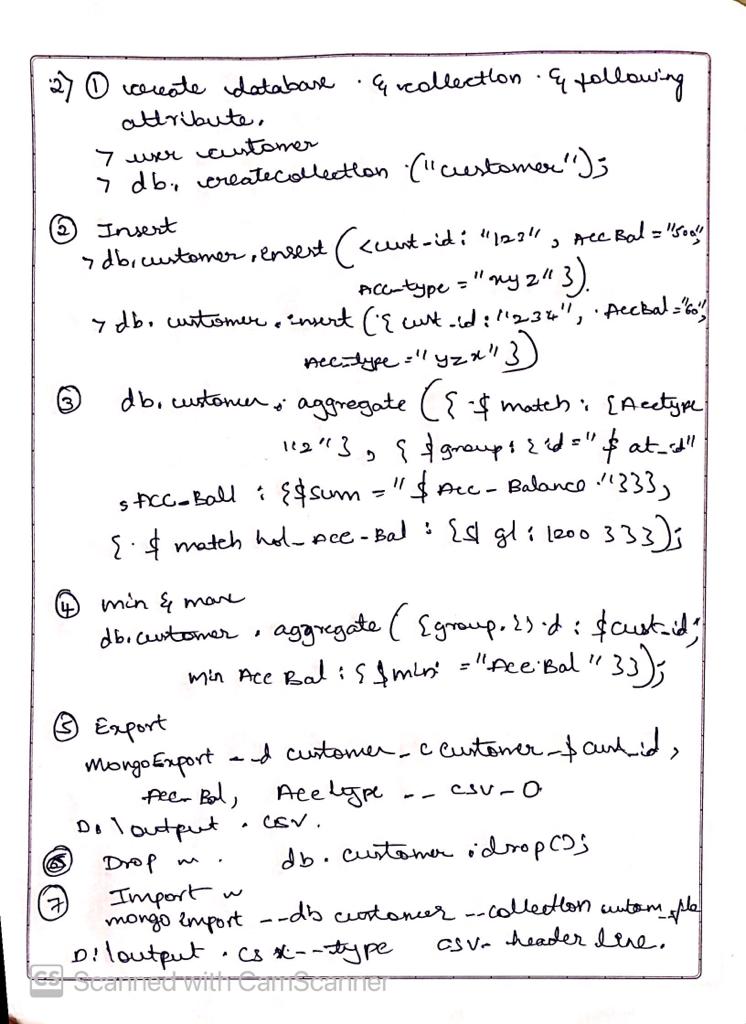 2) ① create database . & collection . & following
attribute.
> user customer
> db. createcollection ("customer");
② Insert
> db.customer.insert ( <cust-id: "123", Acc Bal = "500",
Acc-type = "xyz" }).
> db. customer. insert ({ cust-id: "234", AccBal = "60",
Acc-type = "yzx" })
③ db. customer. aggregate ({ $ match : {Acctype
"2" } , { $ group : { id = " $ at_id"
, Acc-Ball : {$sum = " $ Acc - Balance ." }}},
{ . $ match hol- Acc - Bal : {$ gl : 1200 }}});
④ min & max
db. customer . aggregate ( {group. { } -d : $cust-id",
min Acc Bal : { $min = "Acc Bal " }});
⑤ Export
MongoExport - d customer - c customer - f cust_id ,
Acc- Bal, Acctype -- csv - O
D: \ output . csv .
⑥ Drop db . customer . drop ();
⑦ Import
mongo import --db customer --collection
D: \ output . cs --type csv- header line.
CS Scanned with CamScanner